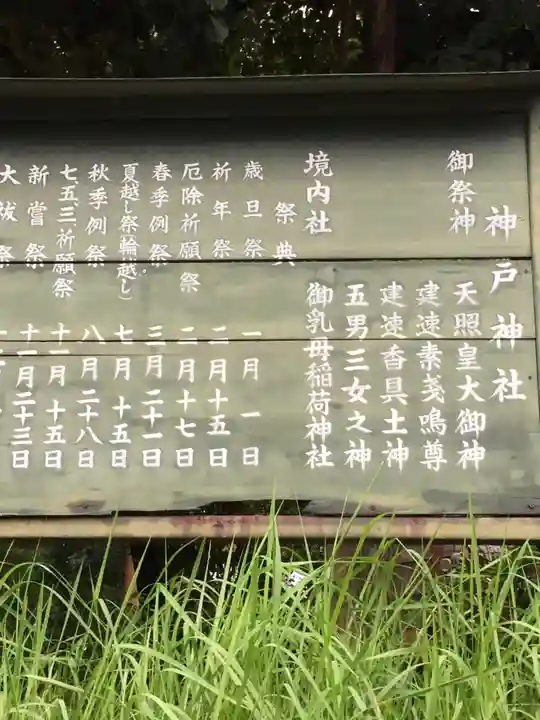 神戸神社
御祭神
天照皇大御神
建速素戔鳴尊
建速香具土神
五男三女之神
境内社
御乳母稲荷神社
祭典
歳旦祭 一月一日
祈年祭 二月十五日
厄除祈願祭 二月十七日
春季例祭 三月二十一日
夏越し祭(輪越し) 七月十五日
秋季例祭 八月二十八日
七、五、三祈願祭 十一月十五日
新嘗祭 十一月二十三日
大祓祭